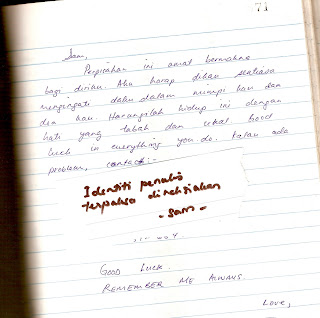 71
Sam,
Perpisahan ini amat bermakna
bagi diriku. Aku harap dikau sentiasa
mengingati daku dalam mimpi kau dan
doa kau. Harungilah hidup ini dengan
hati yang tabah dan cekal. Good
luck in everything you do. Kalau ada
problem, contact:-
Identiti penulis
terpaksa dirahsiakan
- sam -
GOOD LUCK.
REMEMBER ME ALWAYS.
Love,